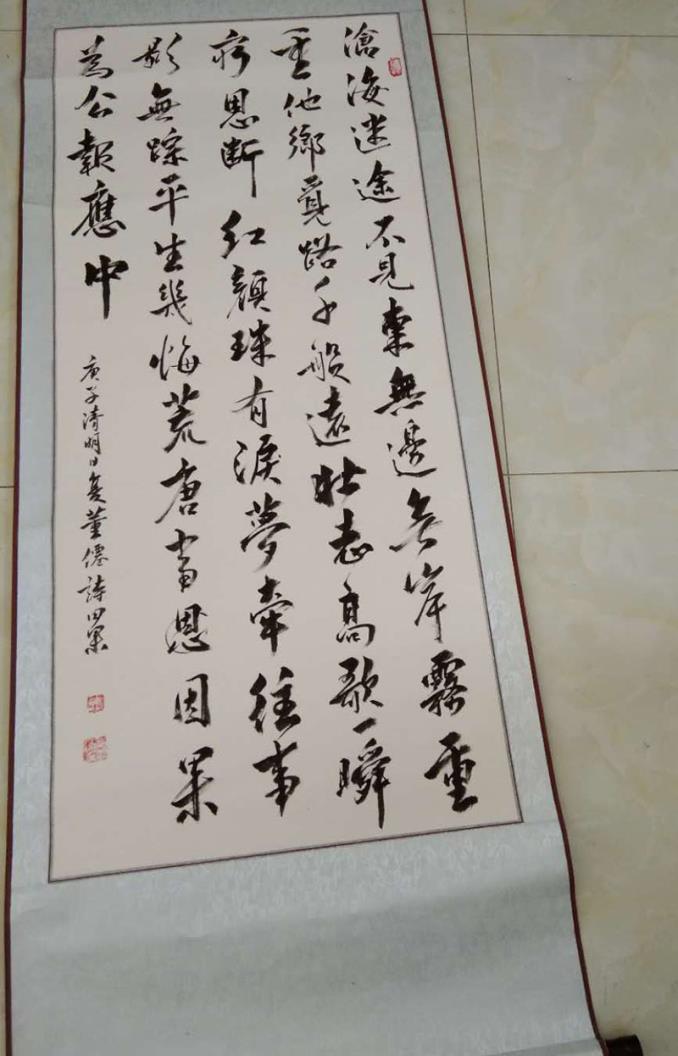 滄海迷途不見東無邊無岸霧重
重他鄉覓路千般遠壯志高歌一瞬
窮恩斷紅顏珠有淚夢牽往事
影無踪平生幾悔荒唐恩因果
為公報應中
庚子清明日董僊詩田果